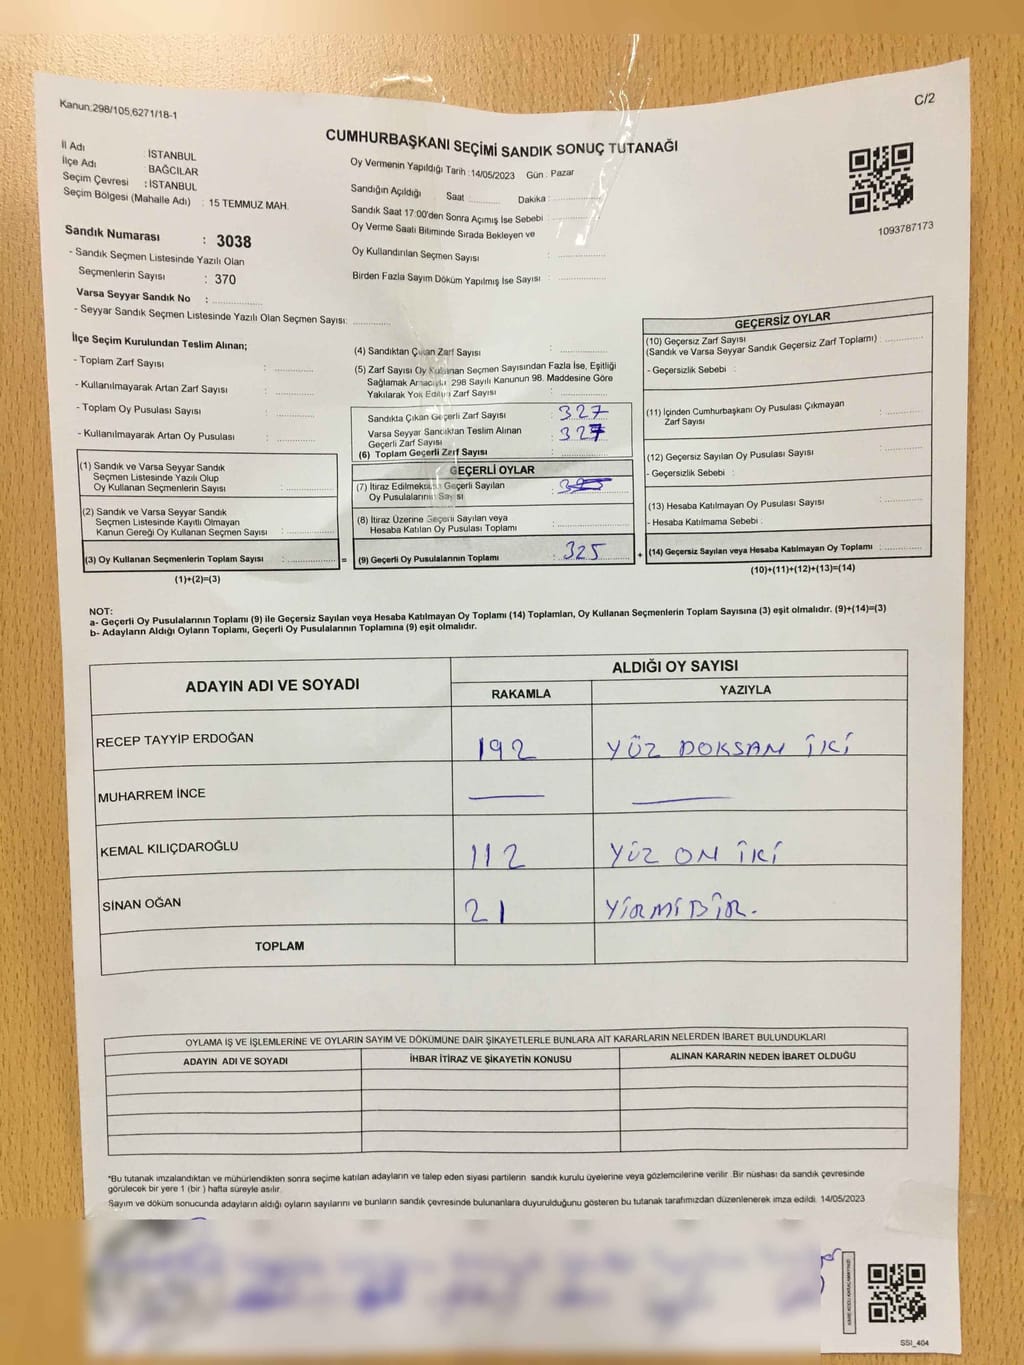 Kanun:298/105,6271/18-1
C/2
CUMHURBAŞKANI SEÇİMİ SANDIK SONUÇ TUTANAĞI
İl Adı : İSTANBUL
İlçe Adı : BAĞCILAR
Seçim Çevresi : İSTANBUL
Seçim Bölgesi (Mahalle Adı) : 15 TEMMUZ MAH.
Oy Vermenin Yapıldığı Tarih : 14/05/2023 Gün : Pazar
Sandığın Açıldığı Saat .......... Dakika : ..........
Sandık Saat 17:00'den Sonra Açımış İse Sebebi : ..........
Oy Verme Saati Bitiminde Sırada Bekleyen ve
Oy Kullandırılan Seçmen Sayısı : ..........
Birden Fazla Sayım Döküm Yapılmış İse Sayısı : ..........
1093787173
Sandık Numarası : 3038
- Sandık Seçmen Listesinde Yazılı Olan
Seçmenlerin Sayısı : 370
Varsa Seyyar Sandık No : ..........
- Seyyar Sandık Seçmen Listesinde Yazılı Olan Seçmen Sayısı: ..........
İlçe Seçim Kurulundan Teslim Alınan;
- Toplam Zarf Sayısı : ..........
- Kullanılmayarak Artan Zarf Sayısı : ..........
- Toplam Oy Pusulası Sayısı : ..........
- Kullanılmayarak Artan Oy Pusulası : ..........
(1) Sandık ve Varsa Seyyar Sandık
Seçmen Listesinde Yazılı Olup
Oy Kullanan Seçmenlerin Sayısı : ..........
(2) Sandık ve Varsa Seyyar Sandık
Seçmen Listesinde Kayıtlı Olmayan
Kanun Gereği Oy Kullanan Seçmen Sayısı : ..........
(3) Oy Kullanan Seçmenlerin Toplam Sayısı : ..........
(1)+(2)=(3)
(4) Sandıktan Çıkan Zarf Sayısı : ..........
(5) Zarf Sayısı Oy Kullanan Seçmen Sayısından Fazla İse, Eşitliği
Sağlamak Amacıyla 298 Sayılı Kanunun 98. Maddesine Göre
Yakılarak Yok Edilen Zarf Sayısı : ..........
Sandıkta Çıkan Geçerli Zarf Sayısı : 327
Varsa Seyyar Sandıktan Teslim Alınan
Geçerli Zarf Sayısı : 327
(6) Toplam Geçerli Zarf Sayısı : ..........
GEÇERLİ OYLAR
(7) İtiraz Edilmeksizin Geçerli Sayılan
Oy Pusulalarının Sayısı :
(8) İtiraz Üzerine Geçerli Sayılan veya
Hesaba Katılan Oy Pusulası Toplamı : ..........
= (9) Geçerli Oy Pusulalarının Toplamı : 325 +
GEÇERSİZ OYLAR
(10) Geçersiz Zarf Sayısı
(Sandık ve Varsa Seyyar Sandık Geçersiz Zarf Toplamı) : ..........
- Geçersizlik Sebebi :
(11) İçinden Cumhurbaşkanı Oy Pusulası Çıkmayan
Zarf Sayısı : ..........
(12) Geçersiz Sayılan Oy Pusulası Sayısı : ..........
- Geçersizlik Sebebi :
(13) Hesaba Katılmayan Oy Pusulası Sayısı : ..........
- Hesaba Katılmama Sebebi :
(14) Geçersiz Sayılan veya Hesaba Katılmayan Oy Toplamı : ..........
(10)+(11)+(12)+(13)=(14)
NOT:
a- Geçerli Oy Pusulalarının Toplamı (9) ile Geçersiz Sayılan veya Hesaba Katılmayan Oy Toplamı (14) Toplamları, Oy Kullanan Seçmenlerin Toplam Sayısına (3) eşit olmalıdır. (9)+(14)=(3)
b- Adayların Aldığı Oyların Toplamı, Geçerli Oy Pusulalarının Toplamına (9) eşit olmalıdır.
ADAYIN ADI VE SOYADI ALDIĞI OY SAYISI
RAKAMLA YAZIYLA
RECEP TAYYİP ERDOĞAN 192 YÜZ DOKSAN İKİ
MUHARREM İNCE
KEMAL KILIÇDAROĞLU 112 YÜZ ON İKİ
SİNAN OĞAN 21 YİRMİBİR.
TOPLAM
OYLAMA İŞ VE İŞLEMLERİNE VE OYLARIN SAYIM VE DÖKÜMÜNE DAİR ŞİKAYETLERLE BUNLARA AİT KARARLARIN NELERDEN İBARET BULUNDUKLARI
ADAYIN ADI VE SOYADI İHBAR İTİRAZ VE ŞİKAYETİN KONUSU ALINAN KARARIN NEDEN İBARET OLDUĞU
*Bu tutanak imzalandıktan ve mühürlendikten sonra seçime katılan adayların ve talep eden siyasi partilerin sandık kurulu üyelerine veya gözlemcilerine verilir. Bir nüshası da sandık çevresinde
görülecek bir yere 1 (bir ) hafta süreyle asılır.
Sayım ve döküm sonucunda adayların aldığı oyların sayılarını ve bunların sandık çevresinde bulunanlara duyurulduğunu gösteren bu tutanak tarafımızdan düzenlenerek imza edildi. 14/05/2023
SSI_404